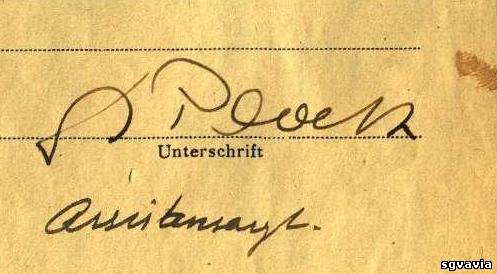 Dr Plock
Unterschrift
Assistenzarzt.
sgvavia